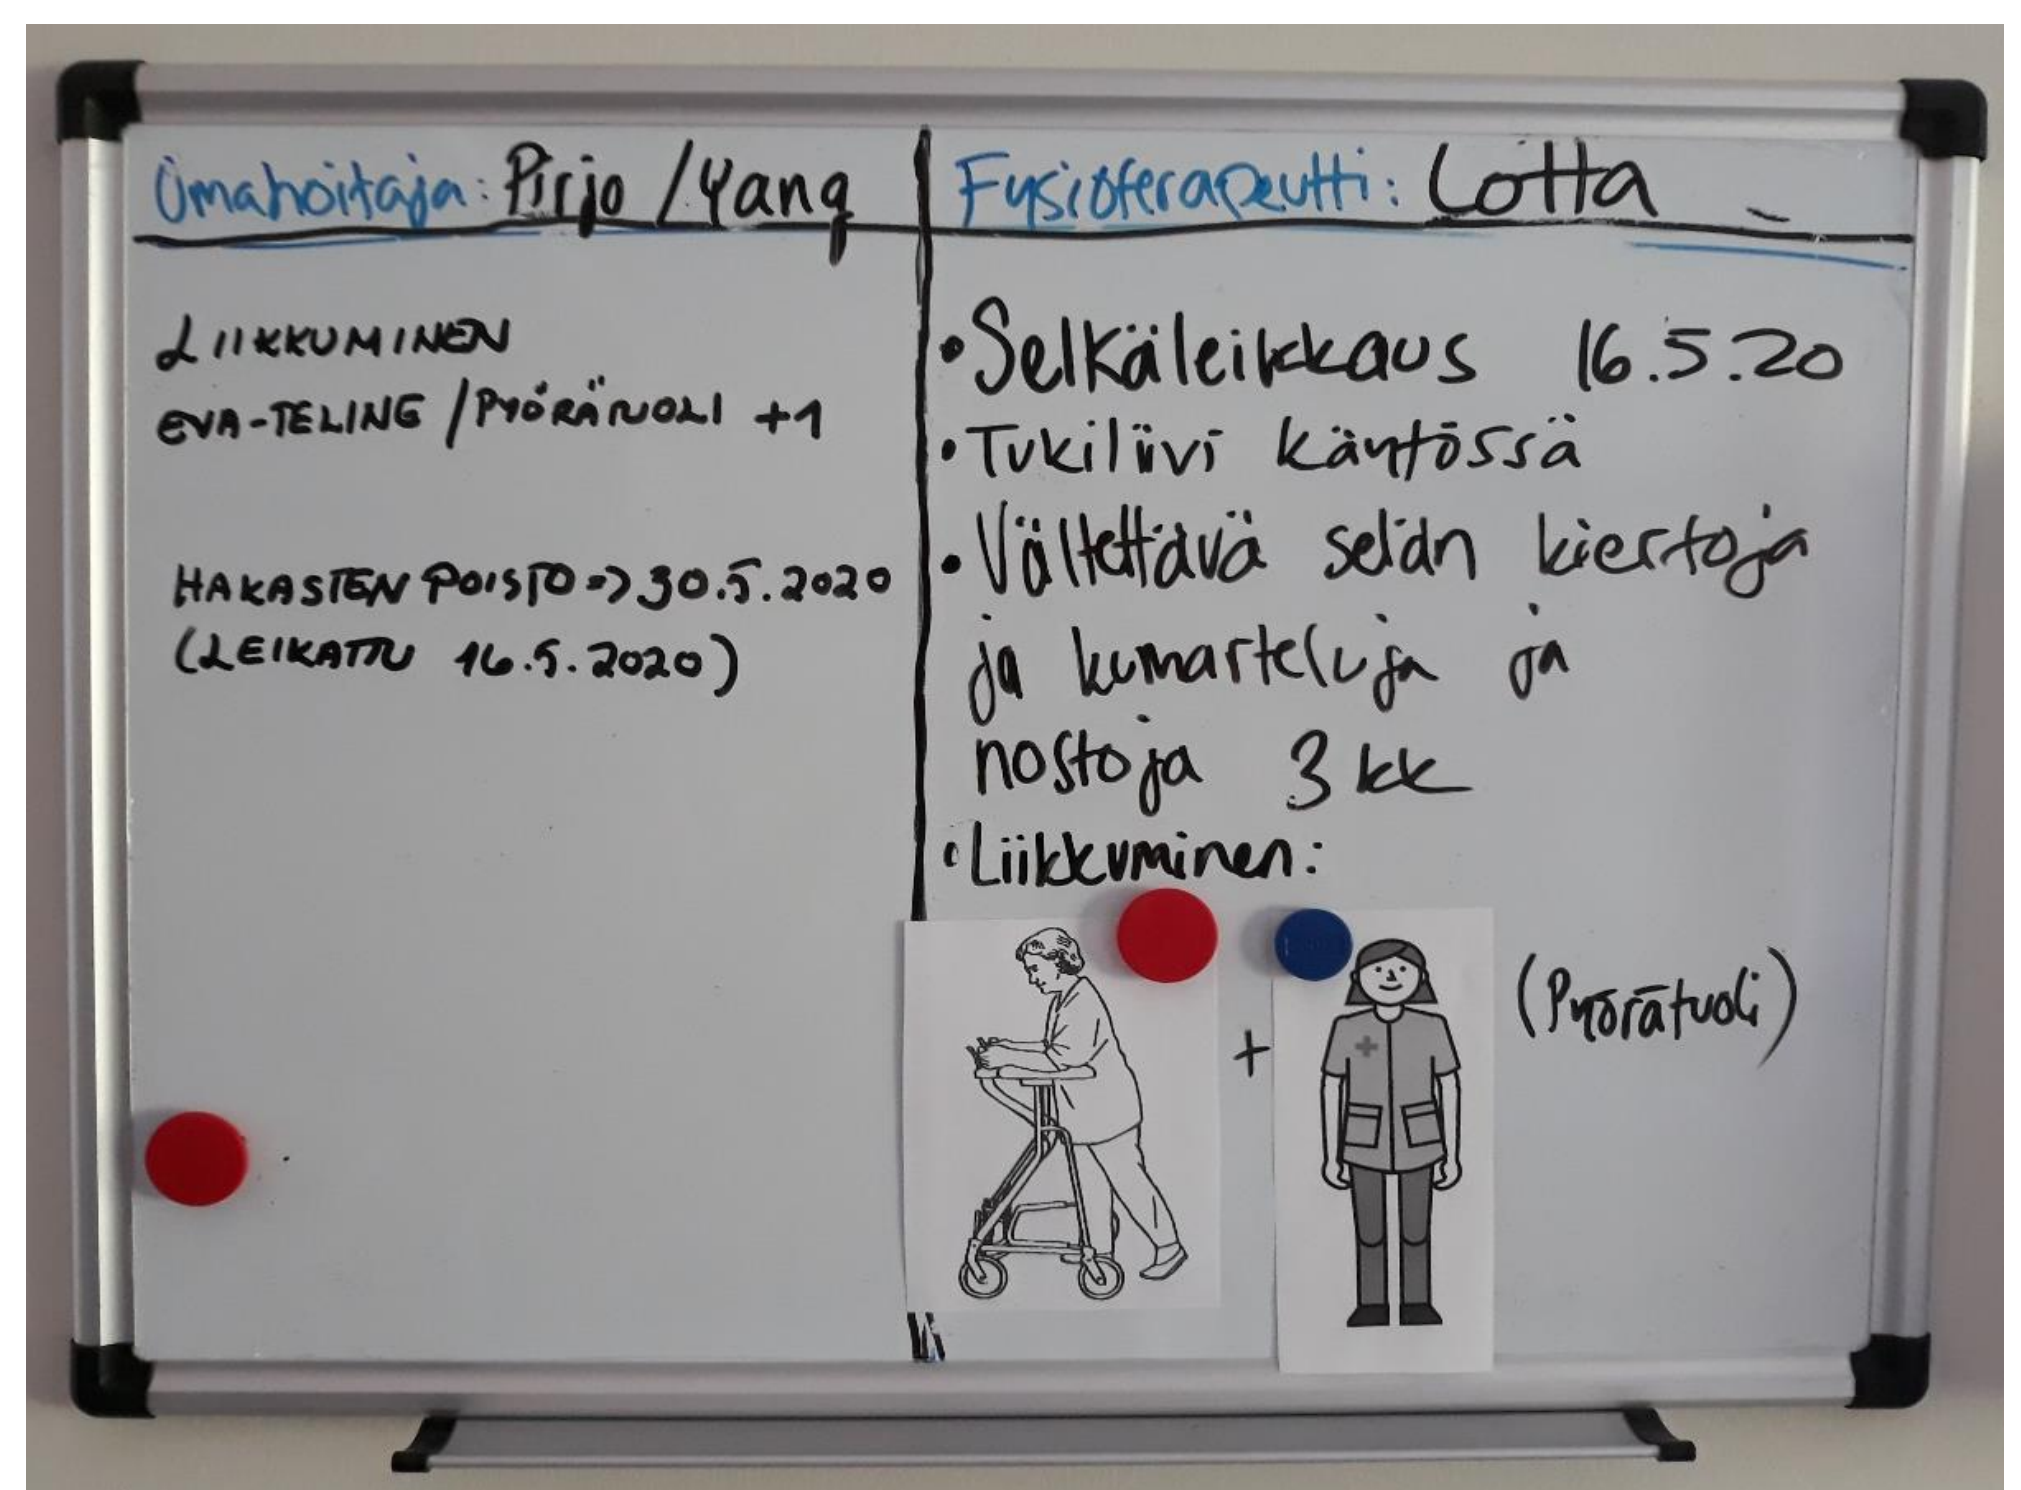 Omahoitaja: Pirjo / Yang
LIIKKUMINEN
EVA-TELINE / PYÖRÄTUOLI +1
HAKASTEN POISTO => 30.5.2020
(LEIKATTU 16.5.2020)
Fysioterapeutti: Lotta
• Selkäleikkaus 16.5.20
• Tukiliivi käytössä
• Vältettävä selän kiertoja
ja kumarteluja ja
nostoja 3 kk
• Liikkuminen:
+ (Pyörätuoli)